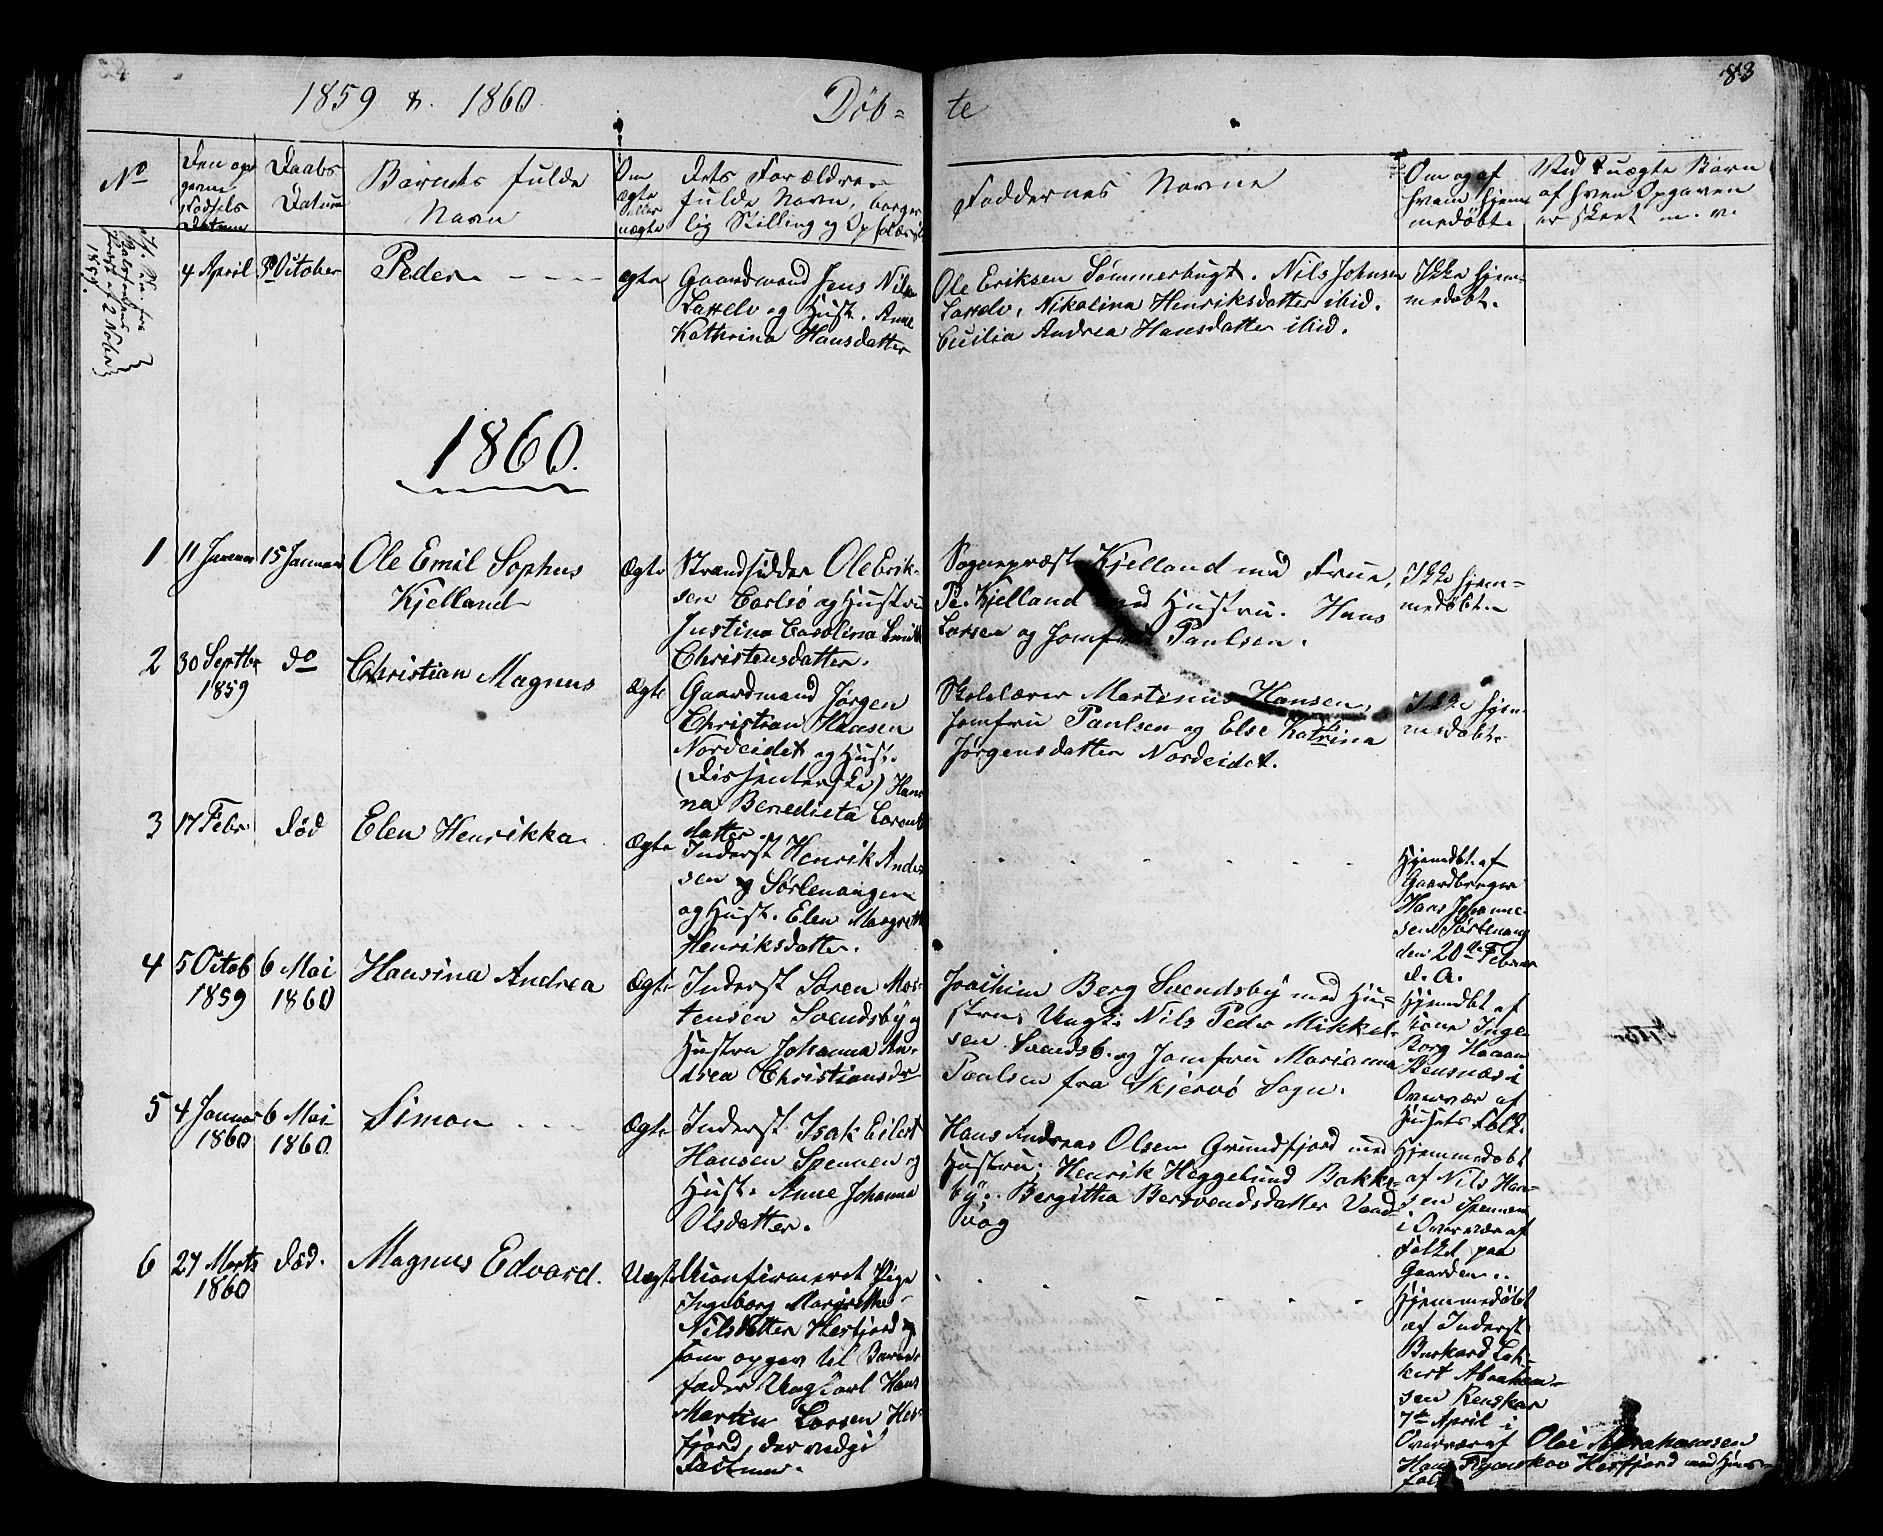 83
1859 & 1860.
Døb-
te
No
Den opgivne Fødsels Datum
Daabs Datum
Barnets fulde Navn
Om ægte eller uægte
Dets Forældres fulde Navn, borgerlig Stilling og Opholdssted
Faddernes Navne
Om og af hvem hjemmedøbt
Ved Uægte Børn af hvem Opgaven er skeet m. v.
1859.
4 April
October
Peder
ægte
Gaardmand Jens Nils
Lasselv og Hust. Anne
Kathrina Hansdatter
Ole Eriksen Sommerbugt. Nils Johnsen
Lasselv, Nikolina Henriksdatter ibid.
Cecilia Andrea Hansdatter ibid.
Ikke hjem-
medøbt.
1860.
1
11 Januar
15 Januar
Ole Emil Sophus
Kjelland
Ægte
Strandsidder Ole Erik-
sen Carlsø og Hustru
Justina Carolina
Christensdatter.
Sognepræst Kjelland med Frue,
P. Kjelland med Hustru. Hans
Larsen og Jomfru Paulsen.
Ikke hjem-
medøbt
2
30 Septbr
1859
do
Christian Magnus
Ægte
Gaardmand Jørgen
Christian Hansen
Nordeidet og Hust.
(Dissenterske) Han-
na Benedicta Lorents
datter
Skolelærer Martinus Hansen,
Jomfru Paulsen og Else Katrina
Jørgensdatter Nordeidet.
Ikke hjem-
medøbt
3
17 Febr
Død
Elen Henrikka
Ægte
Inderst Henrik Ander
sen Sørlenangen
og Hust. Elen Margrethe
Henriksdatter.
Hjemdbt. af
Gaardbruger
Hans Johanne-
sen Sørlenang
den 20de Februar
d. A.
4
5 Octob
1859
6 Mai
1860
Hansina Andrea
Ægte
Inderst Søren Mor-
tensen Svendsby og
Hustru Johanna An-
drea Christiansdr
Joachim Berg Svendsby med Hu-
stru, Ungk. Nils Peder Mikkel-
sen Svendsb. og Jomfru Marianna
Paulsen fra Skjervø Sogn.
Hjemdbt af
Kone Inge
borg Haaan
Stensnæs i
Overvær af
Husets Folk.
5
4 Januar
1860
6 Mai
1860
Simon
Ægte
Inderst Isak Eilert
Hansen Spennen og
Hust. Anne Johanna
Olsdatter.
Hans Andreas Olsen Grundfjord med
Hustru; Henrik Heggelund Bakke-
by. Bergitha Bersvendsdatter Vand
vaag
Hjemmedøbt
af Nils Han-
sen Spennen
i Overvær af
Folket paa
Gaarden.
6
27 Marts
1860
Død.
Magnus Edvard.
Uægte
Ukonfirmeret Pige
Ingeborg Margrethe
Nilsdatter Hesfjord
som opgav til Barne
fader Ungkarl Hans
Martin Larsen Hes-
fjord, der
Hjemmedøbt
af Inderst
Burkard Lek-
kert Abraham-
sen Renskar
7de April i
Overvær af
Hans
Folk
Olai Abrahamsen
Hesfjord med Hus-